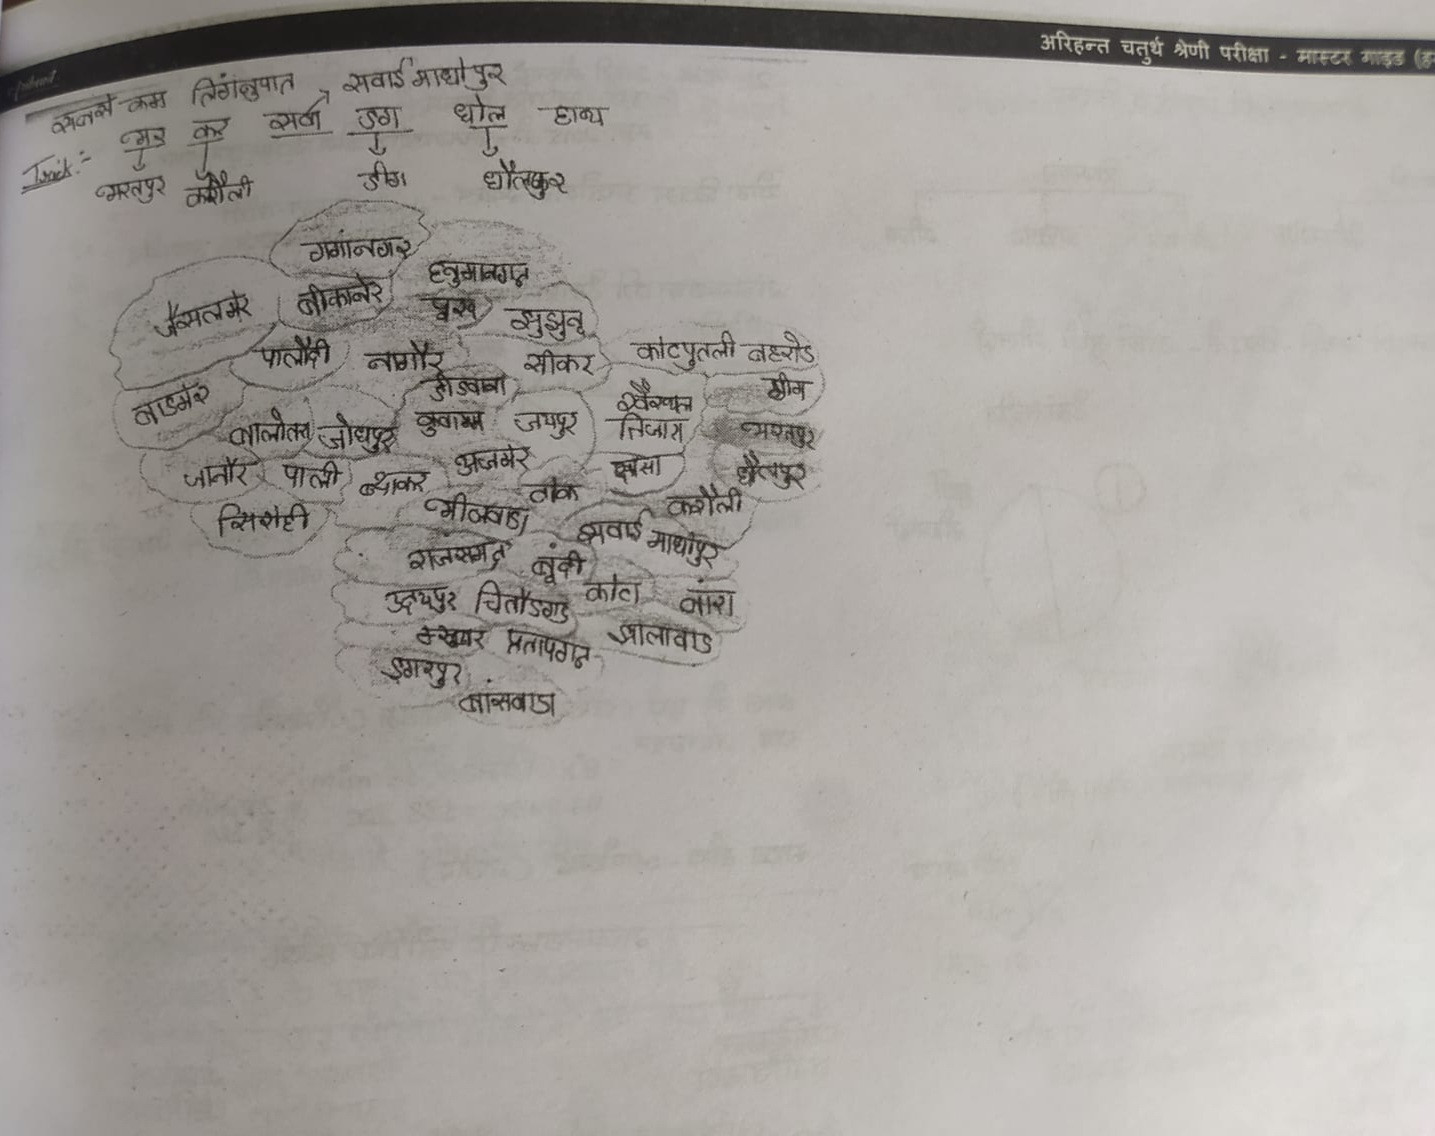 अरिहन्त चतुर्थ श्रेणी परीक्षा - मास्टर गाइड (
सबसे कम लिगंनुपात सवाई माधोपुर
Trick:- भर कर सवा डग धोल हाव्य
भरतपुर करौली डीग धौलपुर
गगांनगर
हनुमानगढ़
जैसलमेर बीकानेर चुरू झुझुनू
पालौदी नागौर सीकर कोटपुतली बहरोड
बाडमेर डीडवाना खैरथल डीग
बालोतरा जोधपुर कुचामन जयपुर तिजारा भरतपुर
जालौर पाली ब्यावर अजमेर टोंक दौसा धौलपुर
सिरोही भीलवाडा सवाई माधोपुर करौली
राजसमन्द बूंदी
उदयपुर चितौडगढ कोटा बांरा
प्रतापगढ़ झालावाड
डुगरपुर
बांसवाडा